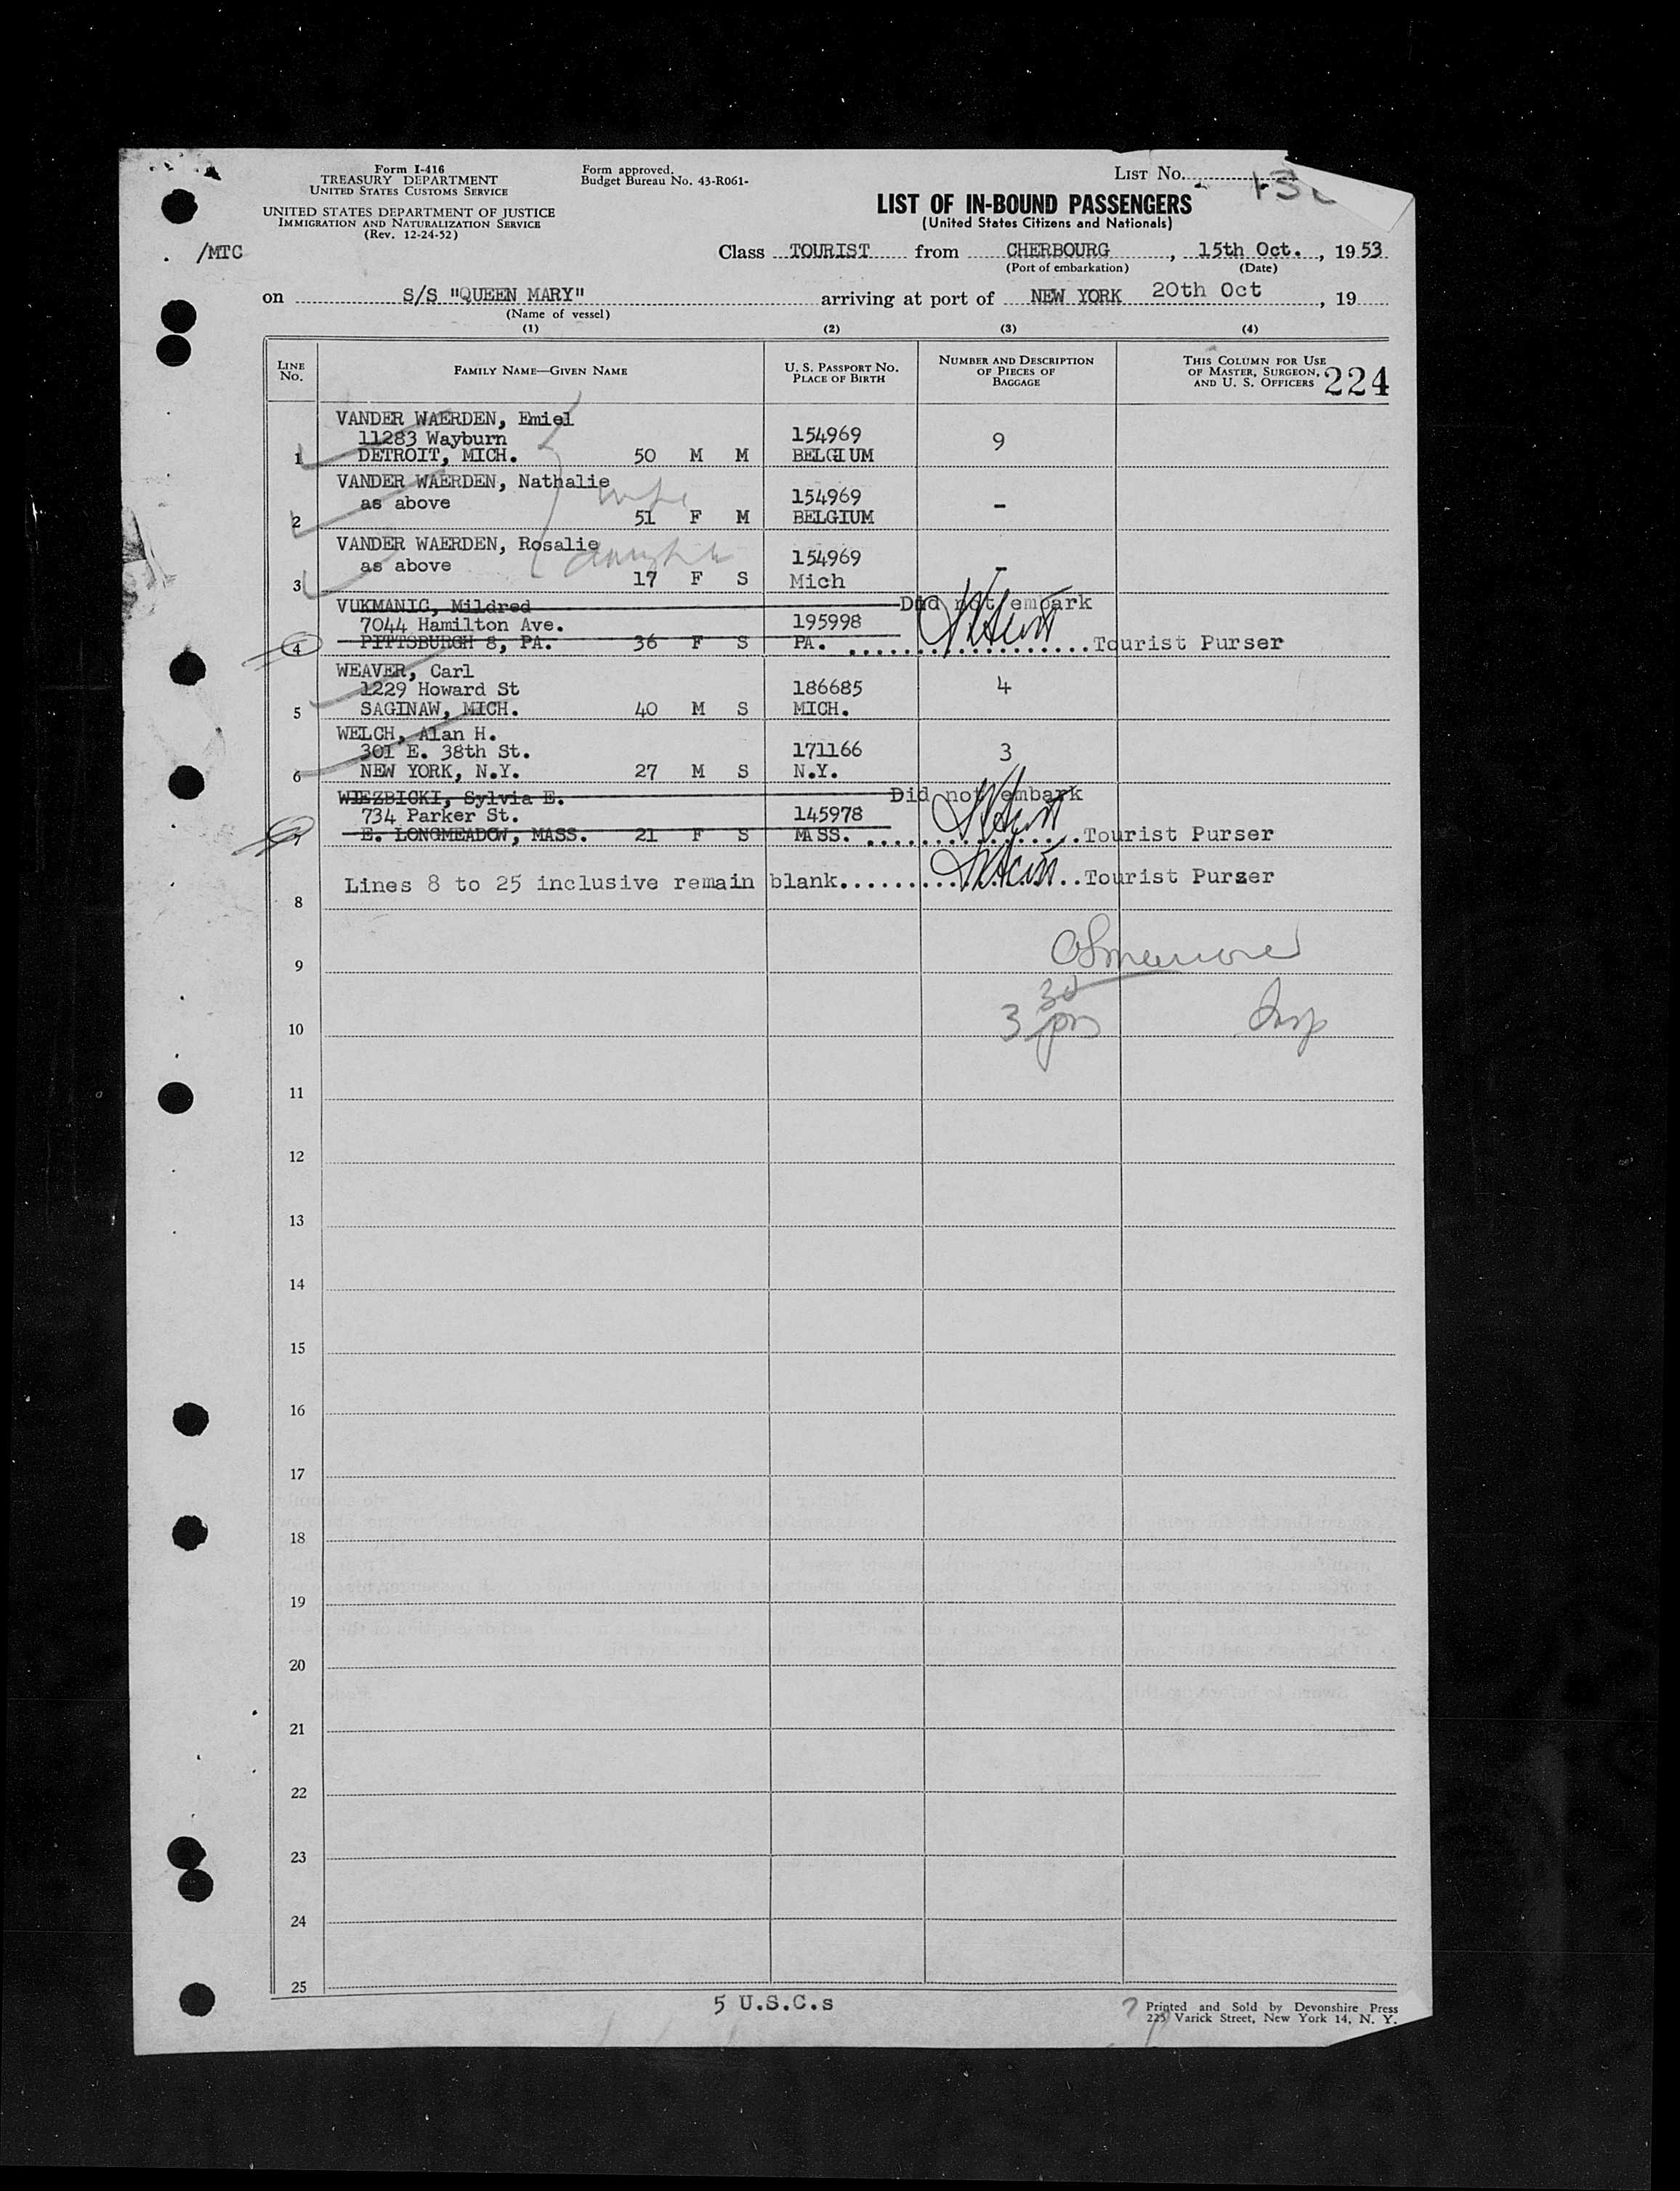 Form I-416
TREASURY DEPARTMENT
UNITED STATES CUSTOMS SERVICE
UNITED STATES DEPARTMENT OF JUSTICE
IMMIGRATION AND NATURALIZATION SERVICE
(Rev. 12-24-52)
Form approved.
Budget Bureau No. 43-R061-
LIST No.
LIST OF IN-BOUND PASSENGERS
(United States Citizens and Nationals)
/MTC
Class TOURIST from CHERBOURG, 15th Oct., 1953
(Port of embarkation) (Date)
on S/S "QUEEN MARY" arriving at port of NEW YORK 20th Oct, 19
(Name of vessel)
(1) (2) (3) (4)
LINE No. FAMILY NAME—GIVEN NAME U. S. PASSPORT No. PLACE OF BIRTH NUMBER AND DESCRIPTION OF PIECES OF BAGGAGE THIS COLUMN FOR USE OF MASTER, SURGEON, AND U. S. OFFICERS 224
VANDER WAERDEN, Emiel
11283 Wayburn 154969 9
1 DETROIT, MICH. 50 M M BELGIUM
VANDER WAERDEN, Nathalie
as above wife 154969 -
2 51 F M BELGIUM
VANDER WAERDEN, Rosalie
as above daughter 154969 -
3 17 F S Mich
VUKMANIC, Mildred Did not embark
7044 Hamilton Ave. 195998
4 PITTSBURGH 8, PA. 36 F S PA. ..................Tourist Purser
WEAVER, Carl
1229 Howard St 186685 4
5 SAGINAW, MICH. 40 M S MICH.
WELCH, Alan H.
301 E. 38th St. 171166 3
6 NEW YORK, N.Y. 27 M S N.Y.
WIEZBICKI, Sylvia E. Did not embark
734 Parker St. 145978
7 E. LONGMEADOW, MASS. 21 F S MASS. ................Tourist Purser
Lines 8 to 25 inclusive remain blank..................Tourist Purser
8
9
3 30 pm Insp
10
11
12
13
14
15
16
17
18
19
20
21
22
23
24
25
5 U.S.C.s
Printed and Sold by Devonshire Press
225 Varick Street, New York 14, N. Y.